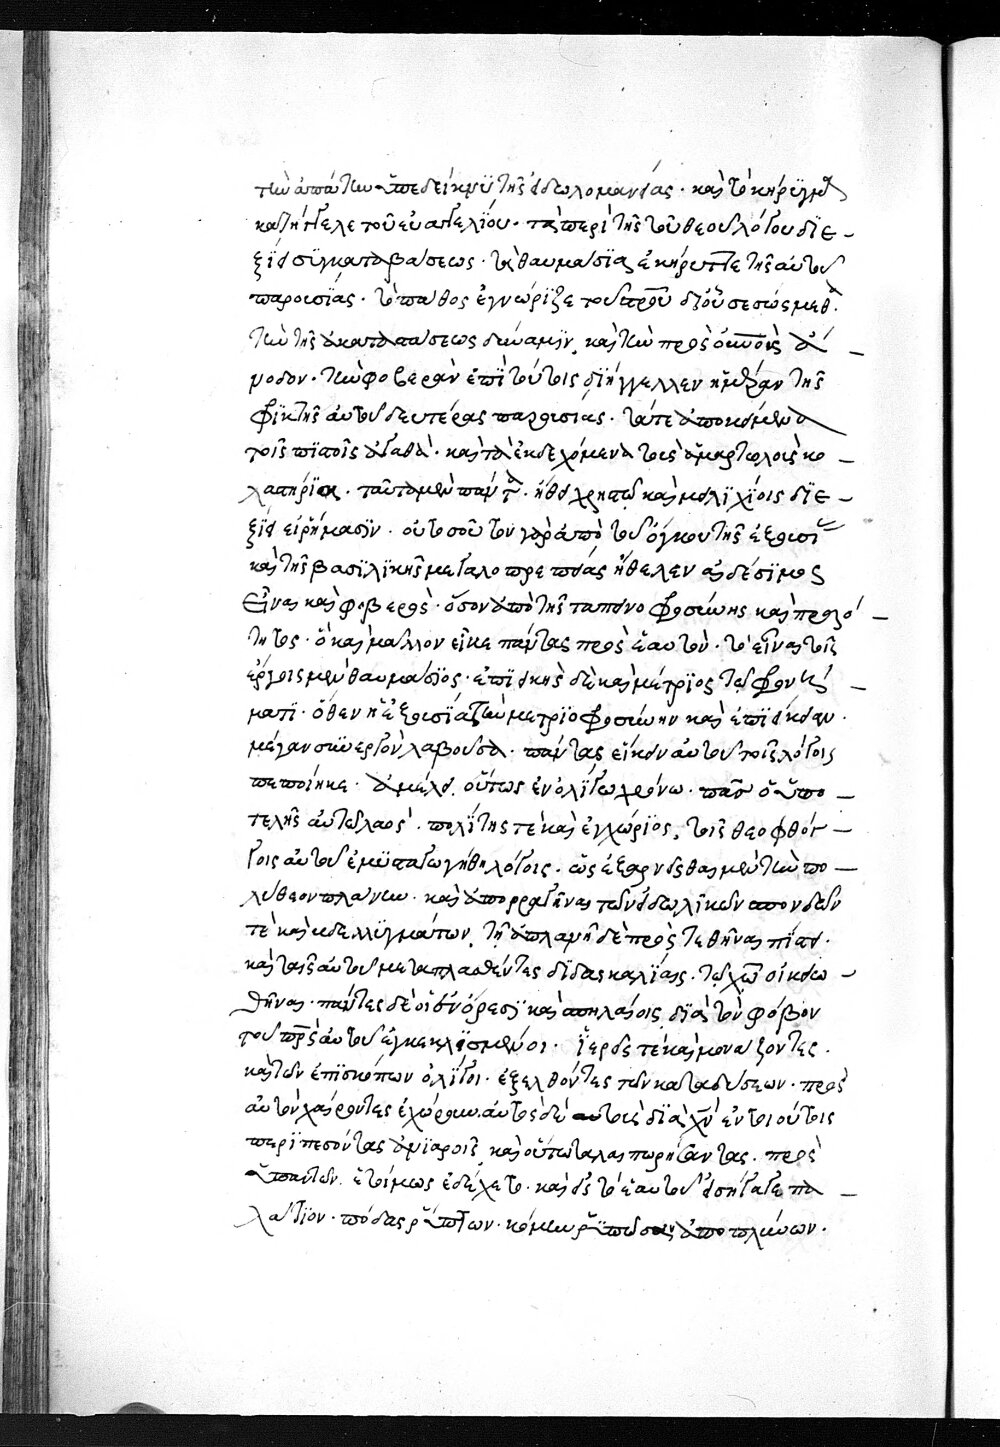 τὴν ἀπάτην ὑπεδείκνυ τῆς εἰδωλομανίας · καὶ τὸ κήρυγμα
κατήγγελε τοῦ εὐαγγελίου · τὰ περὶ τῆς τοῦ θεοῦ λόγου διε-
ξῄει συγκαταβάσεως · τὰ θαυμάσια ἐκήρυττε τῆς αὐτοῦ
παρουσίας · τὸ πάθος ἐγνώριζε τοῦ σταυροῦ δι' οὗ σεσώσμεθα ·
τὴν τῆς ἀναστάσεως δύναμιν, καὶ τὴν πρὸς οὐνοὺς ἄ-
νοδον · τὴν φοβερὰν ἐπὶ τούτοις διήγγελλεν ἡμέραν τῆς
φρικτῆς αὐτοῦ δευτέρας παρουσίας · τά τε ἀποκείμενα
τοῖς πιστοῖς ἀγαθὰ · καὶ τὰ ἐκδεχόμενα τοὺς ἁμαρτωλοὺς κο-
λαστήρια · ταῦτα μὲν πάντα · ἤθει χρηστῷ καὶ μειλιχίοις διε-
ξῄει ῥήμασιν · οὐ τοσοῦτον γὰρ ἀπὸ τοῦ ὄγκου τῆς ἐξουσίας
καὶ τῆς βασιλικῆς μεγαλοπρεπείας ἤθελεν αἰδέσιμος
εἶναι καὶ φοβερὸς · ὅσον ἀπὸ τῆς ταπεινοφροσύνης καὶ πραό-
τητος · ὃ καὶ μᾶλλον εἷλκε πάντας πρὸς ἑαυτὸν · τὸ εἶναι τοῖς
ἔργοις μὲν θαυμάσιος · ἐπιεικὴς δὲ καὶ μέτριος τῷ φρονή-
ματι · ὅθεν ἡ ἐξουσία τὴν μετριοφροσύνην καὶ ἐπιείκειαν ·
μέγαν συνεργὸν λαβοῦσα · πάντας εἴκειν αὐτοῦ τοῖς λόγοις
πεποίηκε · ἀμέλει οὕτως ἐν ὀλίγῳ χρόνῳ · πᾶς ὁ ὑπο-
τελὴς αὐτῷ λαός · πολίτης τὲ καὶ ἐγχώριος, τοῖς θεοφθόγ-
γοις αὐτοῦ ἐμυσταγωγήθη λόγοις · ὡς ἐξαρνεῖσθαι μὲν τὴν πο-
λύθεον πλάνην · καὶ ἀπορραγῆναι τῶν εἰδωλικῶν σπονδῶν
τὲ καὶ βδελυγμάτων, τῇ ἀπλανεῖ δὲ προστεθῆναι πίστει ·
καὶ ταῖς αὐτοῦ μεταπλασθέντες διδασκαλίαις · τῷ χῶ οἰκειω-
θῆναι · πάντες δὲ οἱ ἐν ὄρεσι καὶ σπηλαίοις διὰ τὸν φόβον
τοῦ πρς αὐτοῦ ἐγκεκλεισμένοι · ἱερεῖς τὲ καὶ μονάζοντες ·
καὶ τῶν ἐπισκόπων ὀλίγοι · ἐξελθόντες τῶν καταδύσεων · πρὸς
αὐτὸν χαίροντες ἐχώρουν. αὐτὸς δὲ τοὺς διὰ χν ἐν τοιούτοις
περιπεσόντας ἀνιαροῖς, καὶ οὕτω ταλαιπωρήσαντας · προσ-
υπαντῶν · ἑτοίμως ἐδέχετο · καὶ εἰς τὸ ἑαυτοῦ εἰσήγαγε πα-
λάτιον · πόδας νίπτων · κόμην ῥυπῶσαν ἀποπλύνων ·